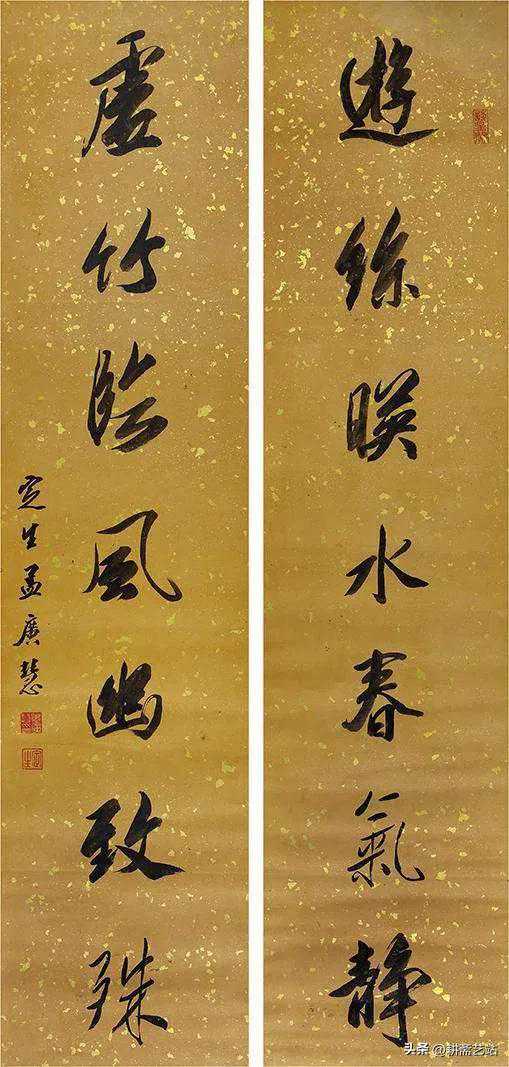 遊絲暎水春氣靜
虛竹臨風幽致殊
定生孟廣慧
头条 @耕斋艺站